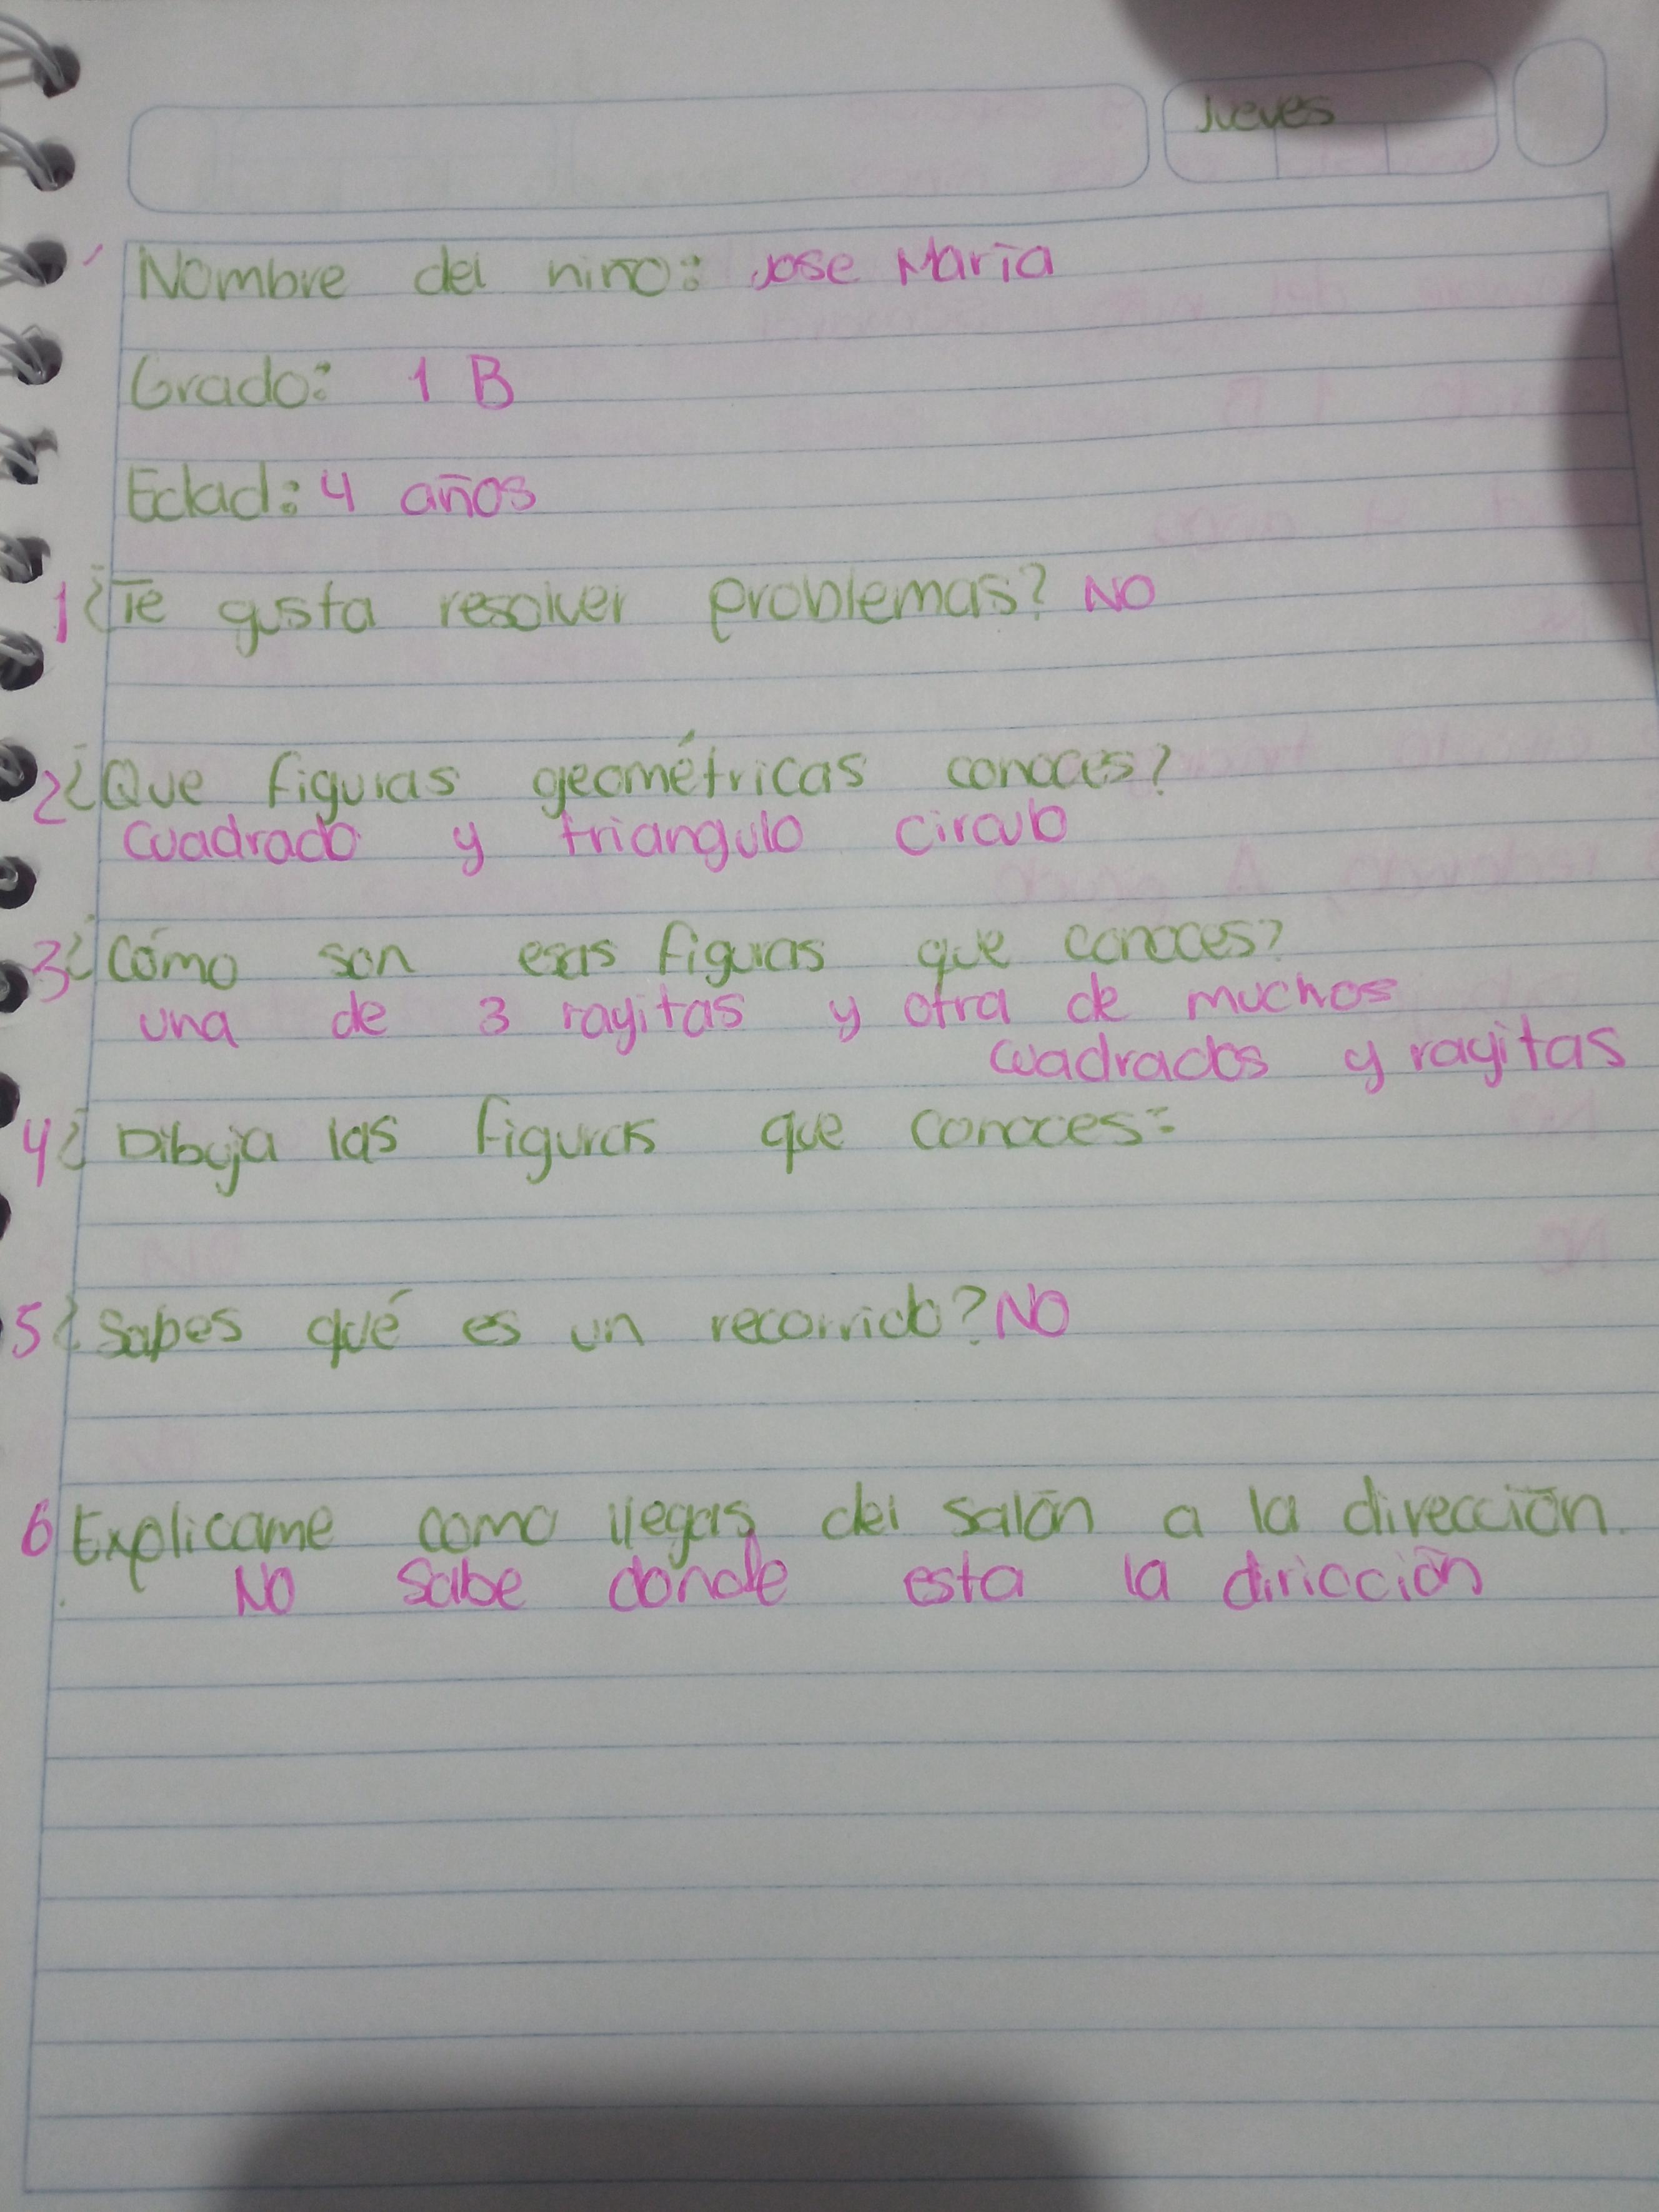 Jueves
Nombre del niño: Jose María
Grado: 1 B
Edad: 4 años
1 ¿Te gusta resolver problemas? NO
2 ¿Que figuras geométricas conoces?
cuadrado y triangulo circulo
3 ¿Cómo son esas figuras que conoces?
una de 3 rayitas y otra de muchos
cuadrados y rayitas
4 ¿ Dibuja las figuras que conoces:
5 ¿Sabes qué es un recorrido? NO
6 Explicame como llegas del salón a la dirección.
No sabe donde esta la diricción